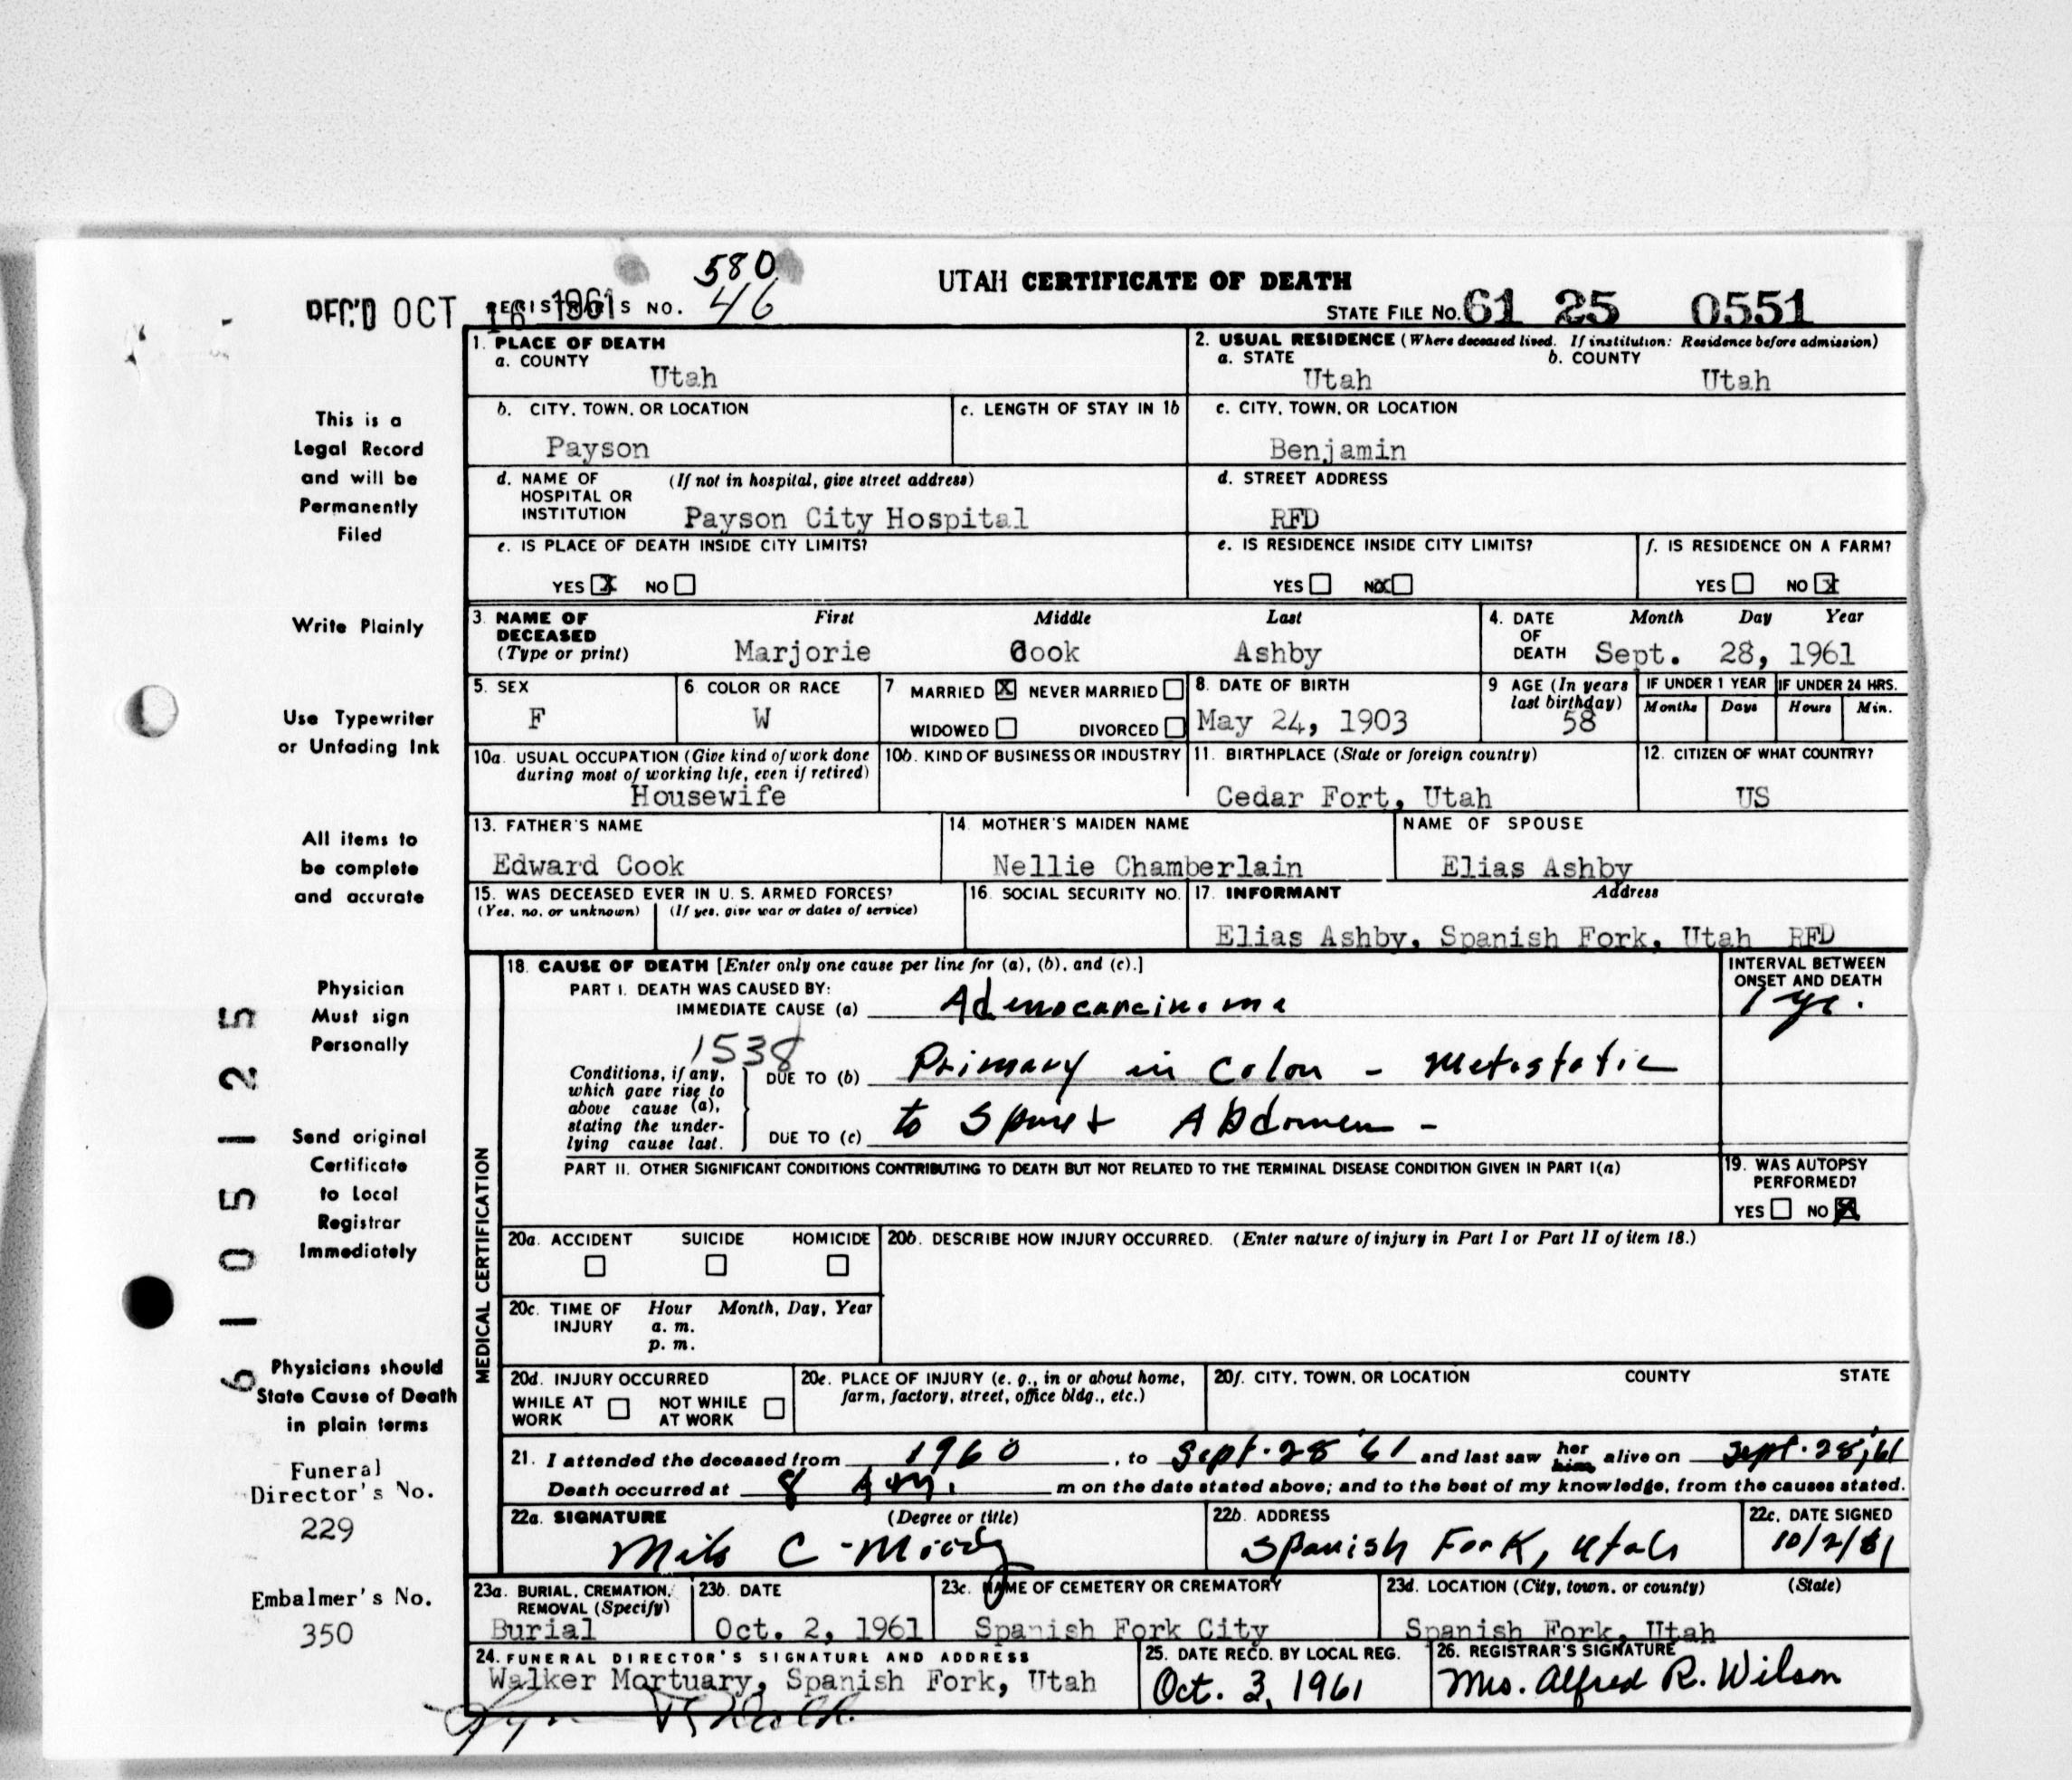 580
UTAH CERTIFICATE OF DEATH
REC'D OCT 16 1961 REGISTRAR'S NO. 46
STATE FILE No. 61 25 0551
1. PLACE OF DEATH
a. COUNTY
Utah
2. USUAL RESIDENCE (Where deceased lived. If institution: Residence before admission)
a. STATE b. COUNTY
Utah Utah
b. CITY, TOWN, OR LOCATION
Payson
c. LENGTH OF STAY IN 1b
c. CITY, TOWN, OR LOCATION
Benjamin
d. NAME OF HOSPITAL OR INSTITUTION (If not in hospital, give street address)
Payson City Hospital
d. STREET ADDRESS
RFD
e. IS PLACE OF DEATH INSIDE CITY LIMITS?
YES X NO
e. IS RESIDENCE INSIDE CITY LIMITS?
YES NO X
f. IS RESIDENCE ON A FARM?
YES NO X
3. NAME OF DECEASED (Type or print)
First Middle Last
Marjorie Cook Ashby
4. DATE OF DEATH
Month Day Year
Sept. 28, 1961
5. SEX
F
6. COLOR OR RACE
W
7 MARRIED X NEVER MARRIED
WIDOWED DIVORCED
8. DATE OF BIRTH
May 24, 1903
9 AGE (In years last birthday)
58
IF UNDER 1 YEAR
Months Days
IF UNDER 24 HRS.
Hours Min.
10a. USUAL OCCUPATION (Give kind of work done during most of working life, even if retired)
Housewife
10b. KIND OF BUSINESS OR INDUSTRY
11. BIRTHPLACE (State or foreign country)
Cedar Fort, Utah
12. CITIZEN OF WHAT COUNTRY?
US
13. FATHER'S NAME
Edward Cook
14. MOTHER'S MAIDEN NAME
Nellie Chamberlain
NAME OF SPOUSE
Elias Ashby
15. WAS DECEASED EVER IN U. S. ARMED FORCES?
(Yes, no, or unknown) (If yes, give war or dates of service)
16. SOCIAL SECURITY NO.
17. INFORMANT Address
Elias Ashby, Spanish Fork, Utah RFD
MEDICAL CERTIFICATION
18. CAUSE OF DEATH [Enter only one cause per line for (a), (b), and (c).]
PART I. DEATH WAS CAUSED BY:
IMMEDIATE CAUSE (a) Adenocarcinoma
INTERVAL BETWEEN ONSET AND DEATH
1 yr.
1538
Conditions, if any, which gave rise to above cause (a), stating the underlying cause last.
DUE TO (b) Primary in Colon - Metastatic
DUE TO (c) to Spine + Abdomen -
PART II. OTHER SIGNIFICANT CONDITIONS CONTRIBUTING TO DEATH BUT NOT RELATED TO THE TERMINAL DISEASE CONDITION GIVEN IN PART I(a)
19. WAS AUTOPSY PERFORMED?
YES NO X
20a. ACCIDENT SUICIDE HOMICIDE
20b. DESCRIBE HOW INJURY OCCURRED. (Enter nature of injury in Part I or Part II of item 18.)
20c. TIME OF INJURY Hour Month, Day, Year
a. m.
p. m.
20d. INJURY OCCURRED
WHILE AT WORK NOT WHILE AT WORK
20e. PLACE OF INJURY (e. g., in or about home, farm, factory, street, office bldg., etc.)
20f. CITY, TOWN, OR LOCATION COUNTY STATE
21. I attended the deceased from 1960, to Sept. 28 '61 and last saw her him alive on Sept. 28, '61
Death occurred at 8 AM. m on the date stated above; and to the best of my knowledge, from the causes stated.
22a. SIGNATURE (Degree or title)
C Moody
22b. ADDRESS
Spanish Fork, Utah
22c. DATE SIGNED
10/2/61
23a. BURIAL, CREMATION, REMOVAL (Specify)
Burial
23b. DATE
Oct. 2, 1961
23c. NAME OF CEMETERY OR CREMATORY
Spanish Fork City
23d. LOCATION (City, town, or county) (State)
Spanish Fork, Utah
24. FUNERAL DIRECTOR'S SIGNATURE AND ADDRESS
Walker Mortuary, Spanish Fork, Utah
25. DATE RECD. BY LOCAL REG.
Oct. 3, 1961
26. REGISTRAR'S SIGNATURE
Mrs. Alfred R. Wilson
This is a
Legal Record
and will be
Permanently
Filed
Write Plainly
Use Typewriter
or Unfading Ink
All items to
be complete
and accurate
Physician
Must sign
Personally
Send original
Certificate
to Local
Registrar
Immediately
Physicians should
State Cause of Death
in plain terms
Funeral
Director's No.
229
Embalmer's No.
350
6105125